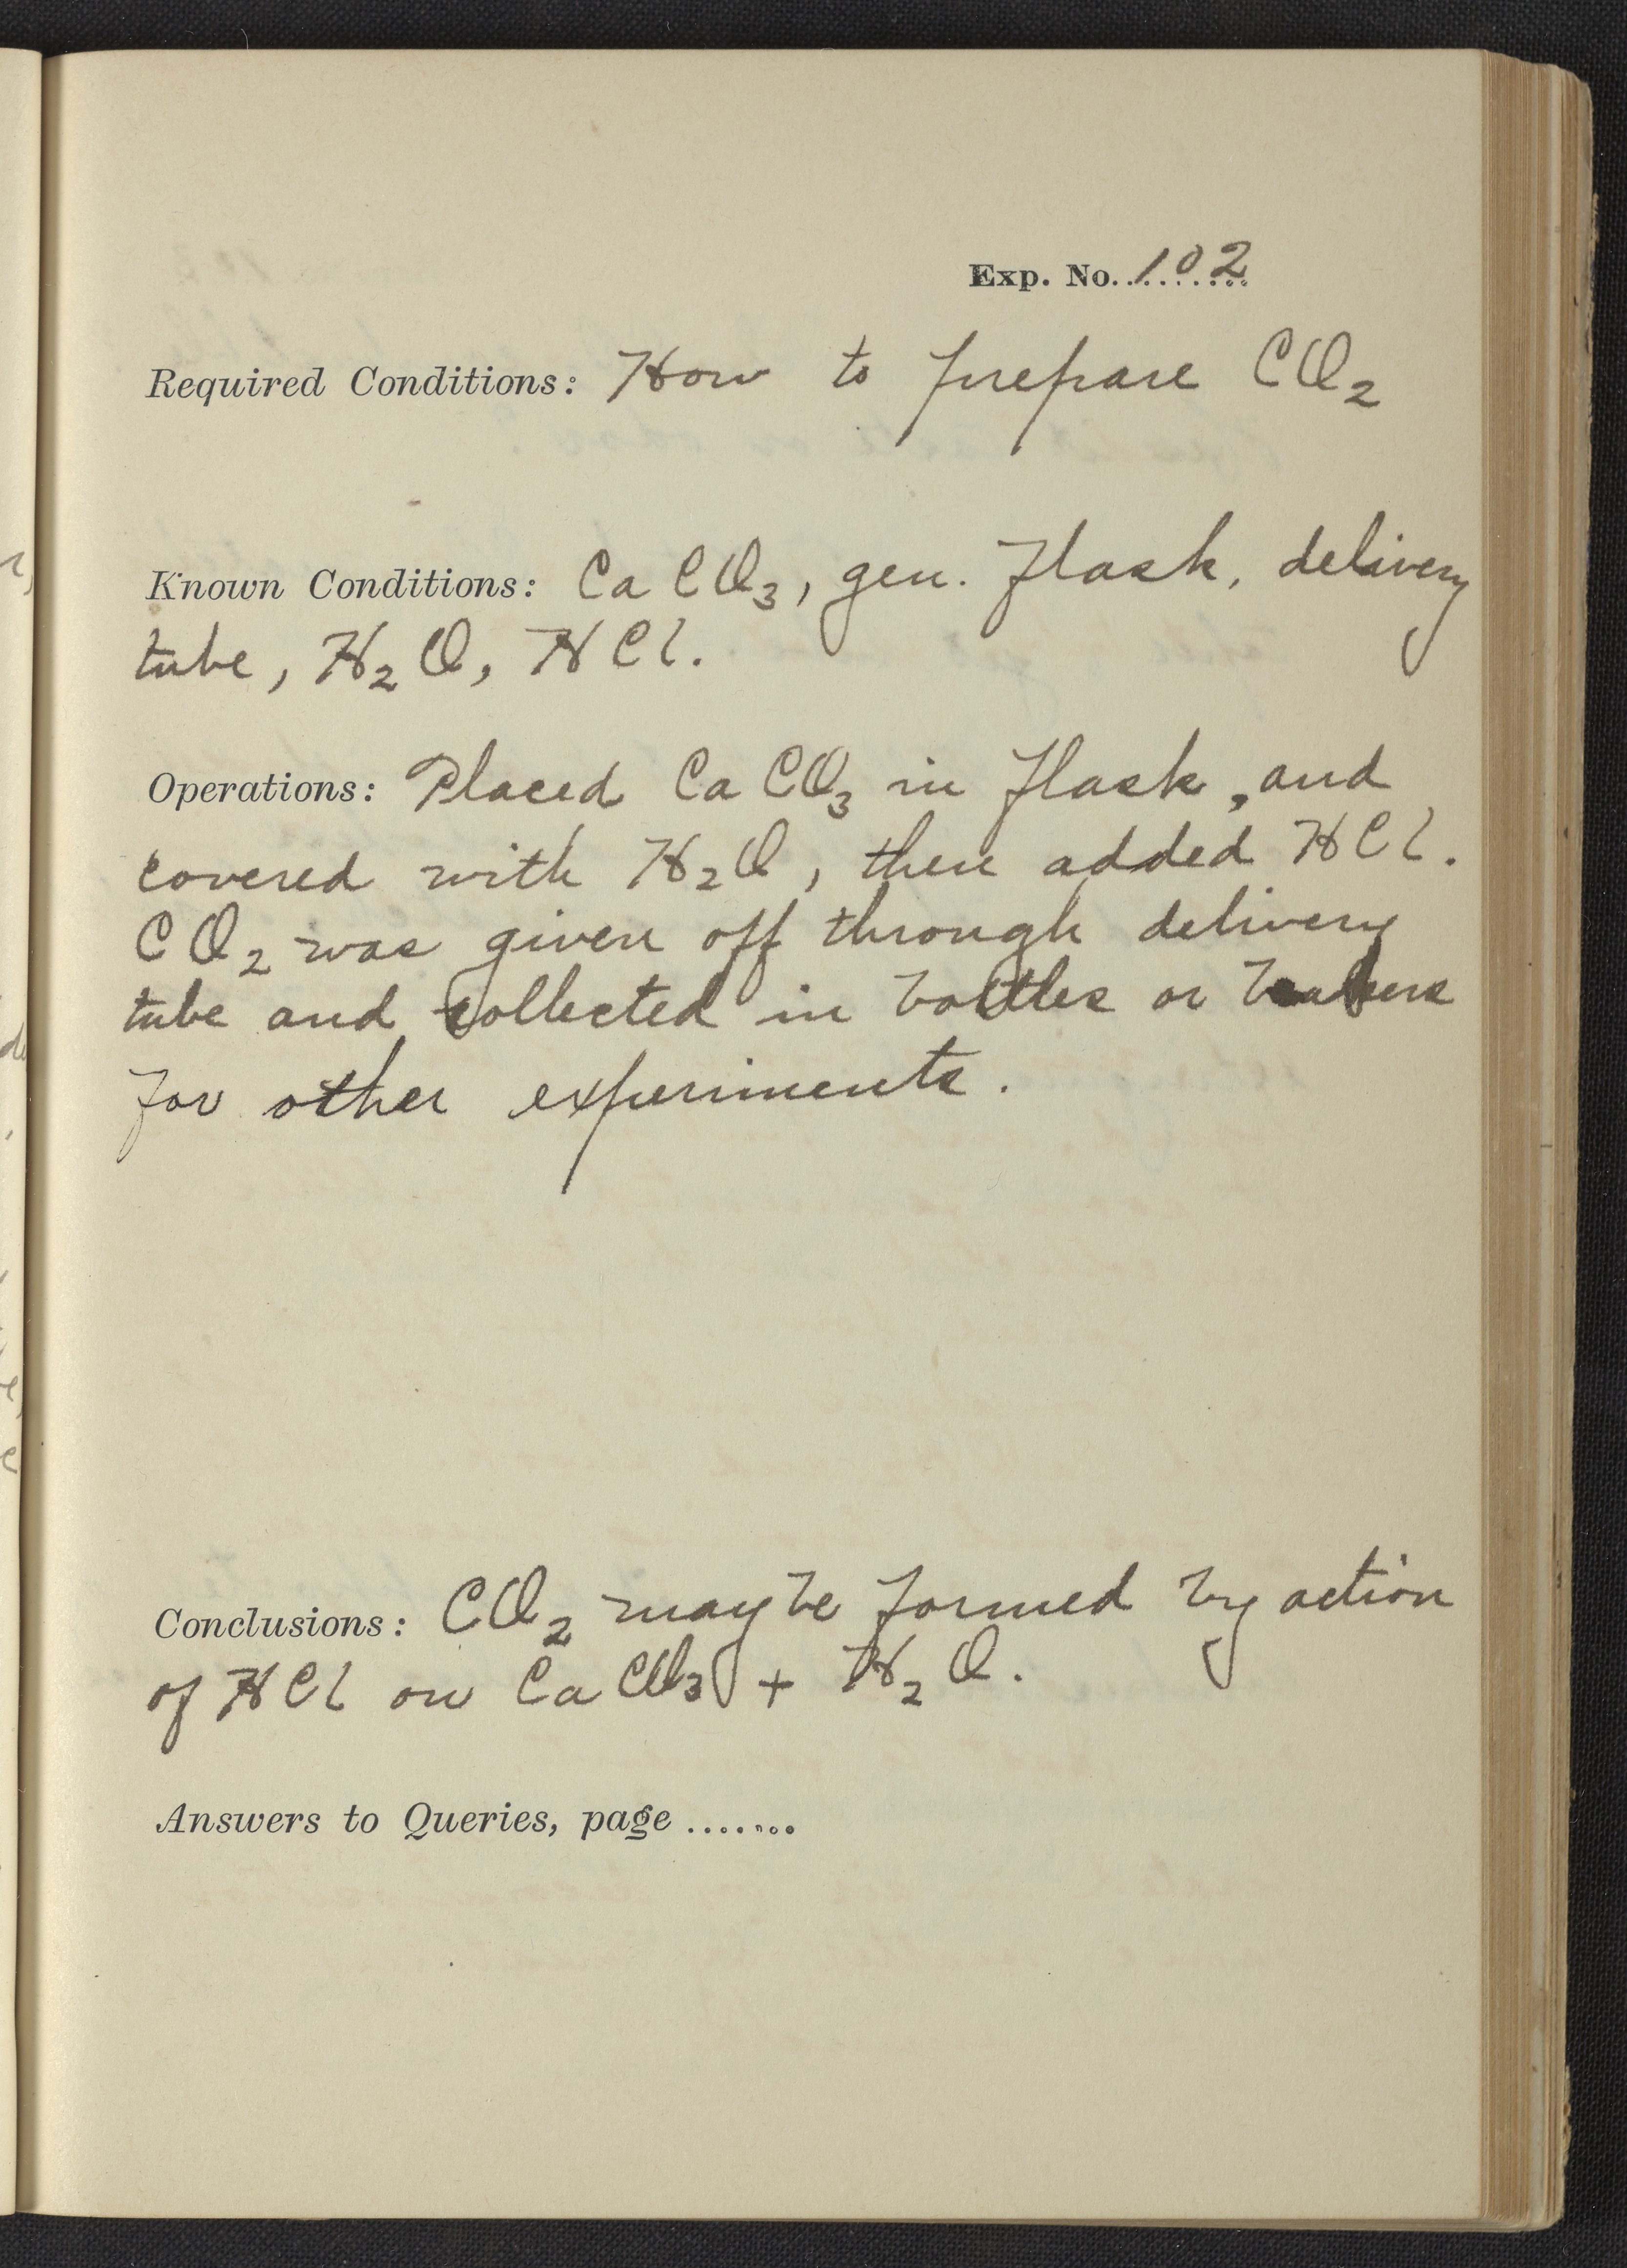 Exp. No. 102
Required Conditions: How to prepare CO₂
Known Conditions: CaCO₃, gen. flask, delivery
tube, H₂O, HCl.
Operations: Placed CaCO₃ in flask, and
covered with H₂O, then added HCl.
CO₂ was given off through delivery
tube and collected in bottles or beakers
for other experiments.
Conclusions: CO₂ may be formed by action
of HCl on CaCO₃ + H₂O.
Answers to Queries, page .......